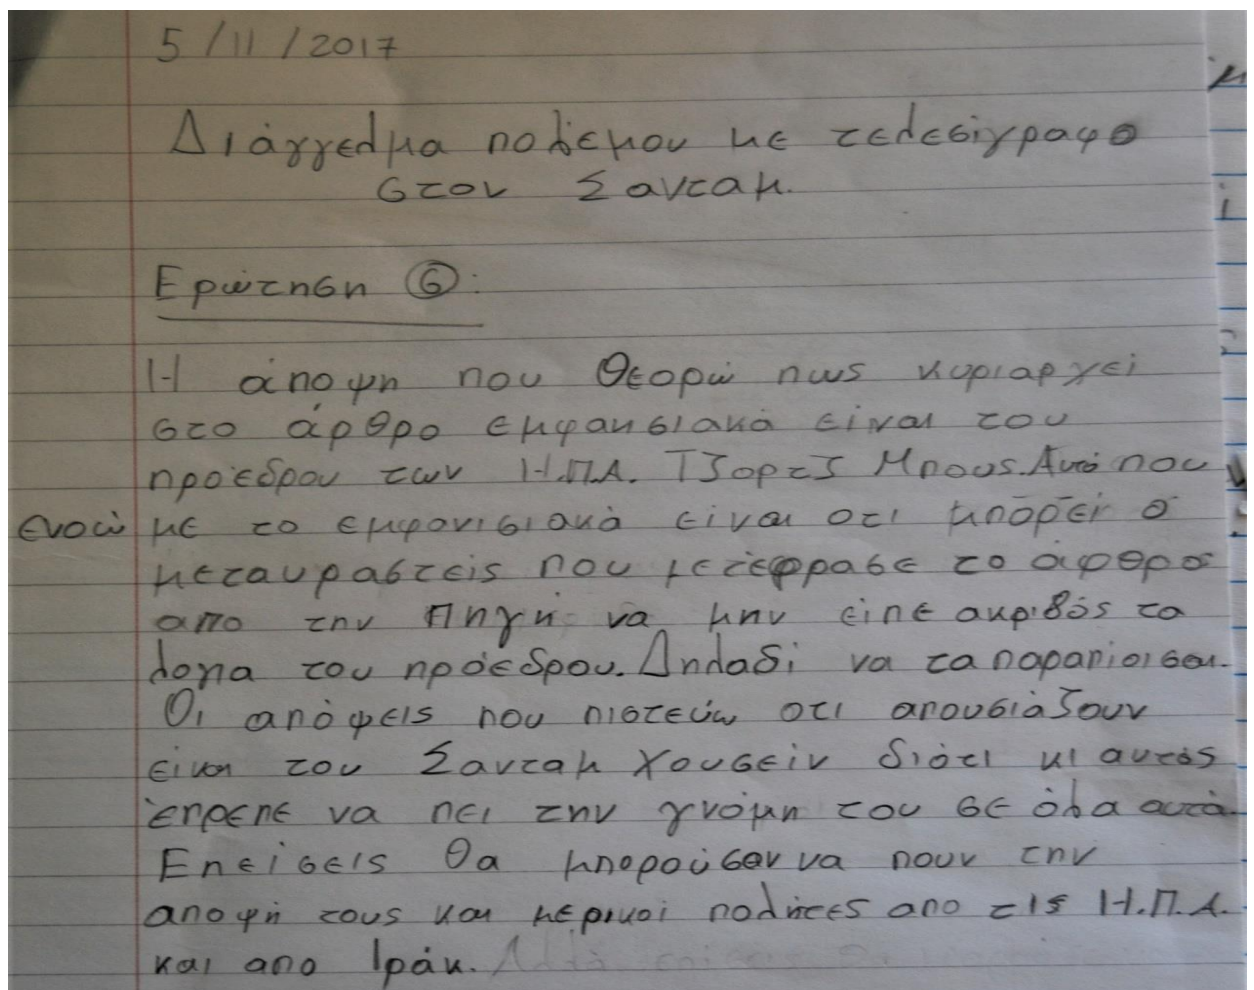 5/11/2017
Διάγγελμα πολέμου με τελεσίγραφο
στον Σανταμ.
Ερώτηση 6:
Η άποψη που Θεορώ πως κυριαρχεί
στο άρθρο εμφανισιακά είναι του
προέδρου των Η.Π.Α. Τζορτζ Μπους. Αυτό που
ενοώ με το εμφανισιακά είναι οτι μπορεί ο
μεταυραστεις που μετέφρασε το άρθρο
απο την πηγή να μην είπε ακριβός τα
λογια του πρόεδρου. Δηλαδί να τα παραπίοισαι.
Οι απόψεις που πιστεύω οτι απουσιάζουν
είναι του Σανταμ Χουσείν διότι κι αυτός
έπρεπε να πει την γνόμη του σε όλα αυτά.
Επείσεις θα μπορούσαν να πουν την
αποψή τους και μερικοί πολήτες απο τις Η.Π.Α.
και απο Ιράκ.